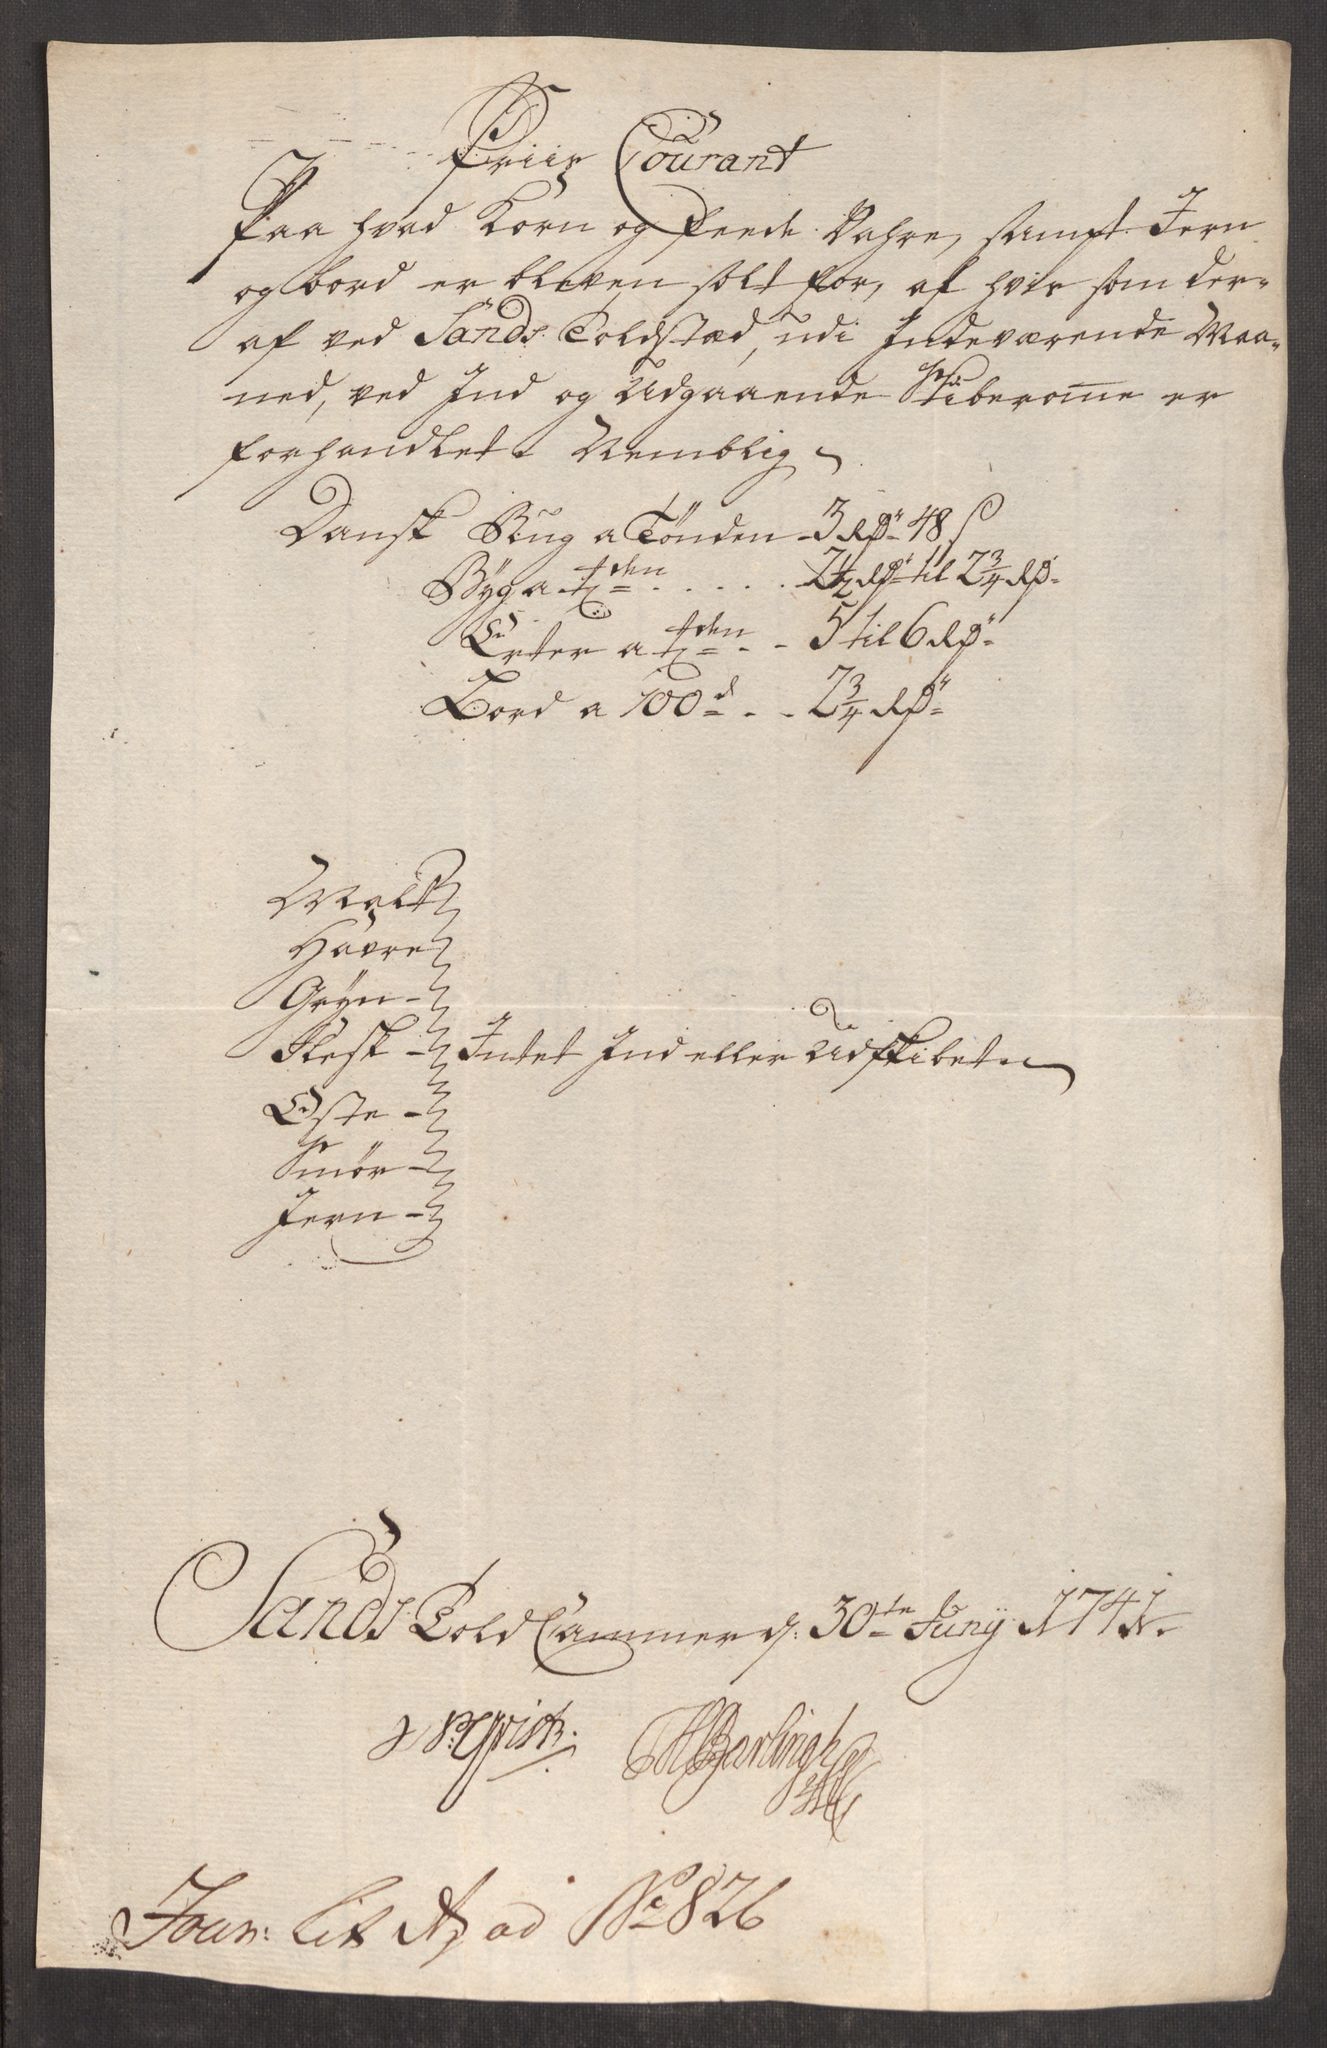 Priis Courant
Paa hvad Korn og Feede Vahre, samt Jern
og bord er bleven solt for, af hvis som der-
af ved Sands Toldstæd, udi Indeværende Maa-
ned, ved Ind og Udgaaende Skiberome er
forhandlet. Nemblig
Dansk Rug a Tønden - 3 Rd 48 s
Byg a tden . . . . 2 1/2 Rd til 2 3/4 Rd
Erter a tden - - 5 til 6 Rd
Bord a 100d - - 2 3/4 Rd
Malt
Havre
Gryn -
Flesk - Intet Ind eller Udskibet
Oste -
Smör -
Jern -
Sands Told Cammer d: 30te Juny 1741
Jour: Lit A, ad No 826